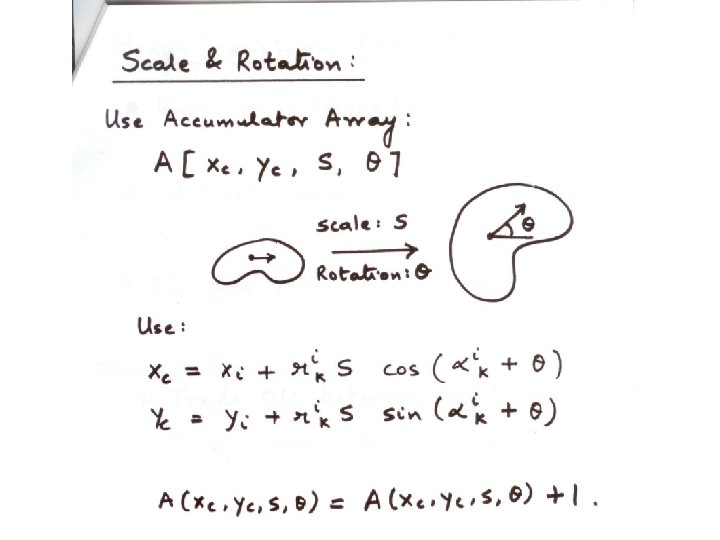 Scale & Rotation:
Use Accumulator Array:
A[xc, yc, S, θ]
Scale: S
Rotation: θ
θ
Use:
xc = xi + rik S cos (αik + θ)
yc = yi + rik S sin (αik + θ)
A(xc, yc, s, θ) = A(xc, yc, s, θ) + 1.